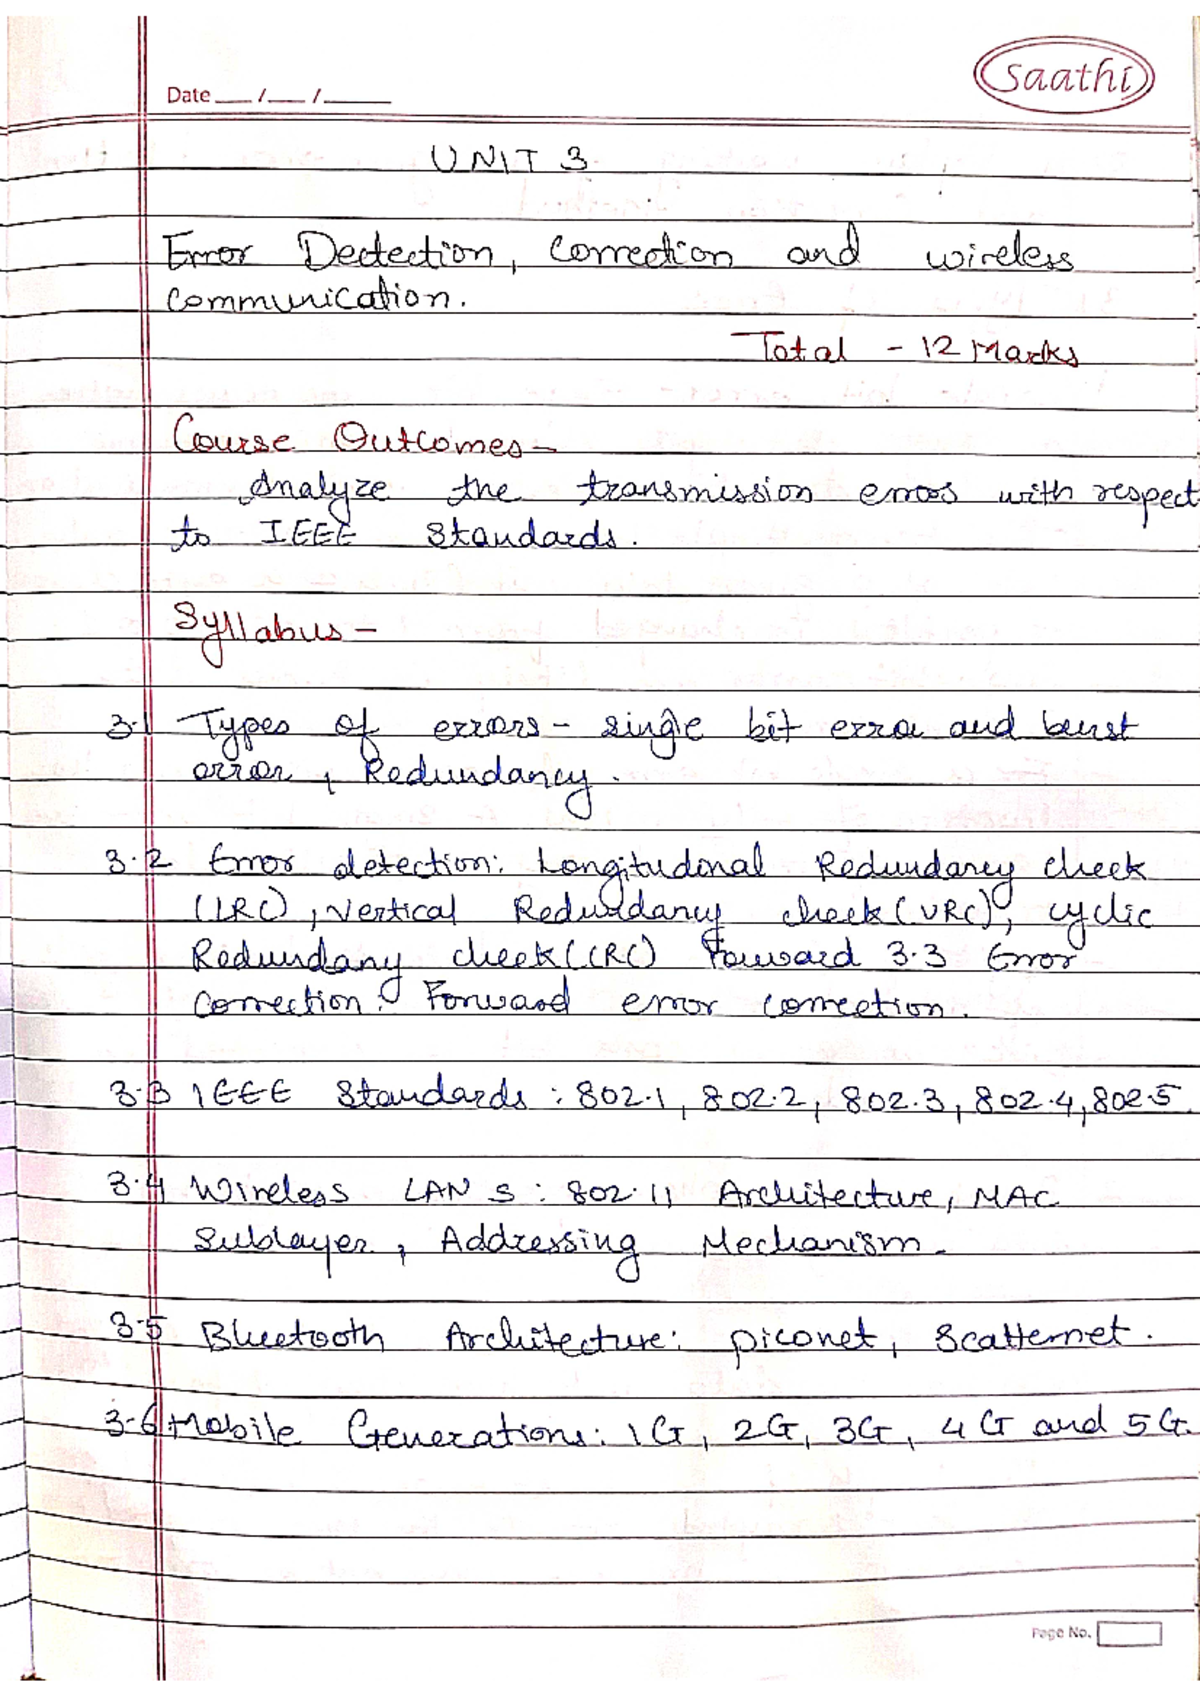 saathi
Date ___/___/______
UNIT 3
Error Dectection, correction and wireless
communication.
Total - 12 Marks
Course Outcomes-
Analyze the transmission errors with respect
to IEEE Standards.
Syllabus -
3.1 Types of errors - single bit error and burst
error, Redundancy.
3.2 Error detection: Longitudinal Redundancy check
(LRC), Vertical Redundancy check (VRC), cyclic
Redundany check (CRC) Forward 3.3 Error
Correction: Forward error correction.
3.3 IEEE Standards : 802.1, 802.2, 802.3, 802.4, 802.5.
3.4 Wireless LAN s : 802.11 Architecture, MAC
Sublayer, Addressing Mechanism.
3.5 Bluetooth Architecture: piconet, Scatternet.
3.6 Mobile Generations: 1G, 2G, 3G, 4G and 5G.
Page No.